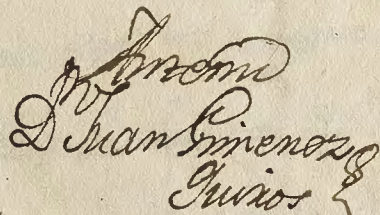 Antemi
D Juan Gimenez
Quiros